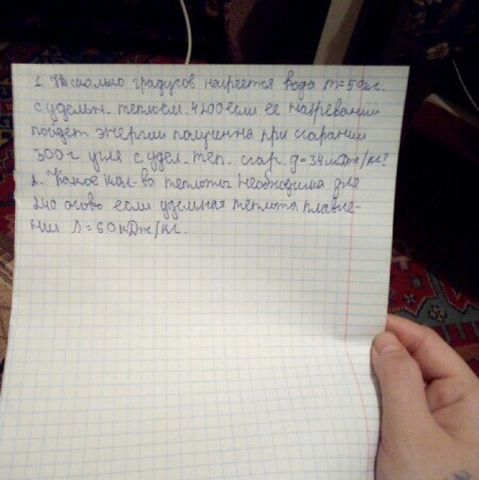 1. На сколько градусов нагреется вода m=59кг.
с удельн. теплоем. 4200 если ее нагревании
пойдет энергии полученна при сгарании
300 г угля с удел. теп. сгар. q=34мДж/кг?
2. Какое кол-во теплоты необходима для
олово если удельная теплота плавле-
нии λ=60кДж/кг.